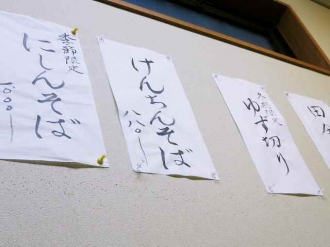 季節限定
にしんそば
一、〇〇〇ー
けんちんそば
八八〇ー
ゆず切り
田